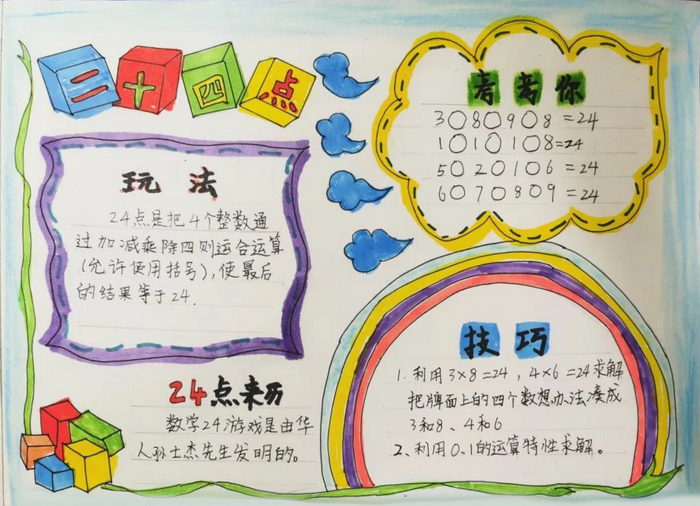 二十四点
玩法
24点是把4个整数通
过加减乘除四则运合运算
(允许使用括号),使最后
的结果等于24.
24点来历
数学24游戏是由华
人孙士杰先生发明的。
考考你
3○8○9○8=24
1○1○1○8=24
5○2○1○6=24
6○7○8○9=24
技巧
1.利用3×8=24,4×6=24求解
把牌面上的四个数想办法凑成
3和8、4和6
2、利用0、1的运算特性求解。